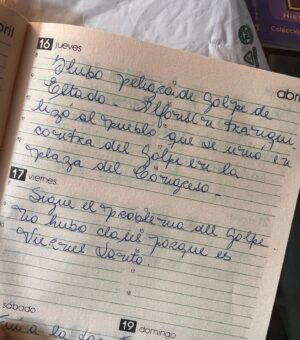 ril
His
Colecció
16 jueves
abri
Hubo peligro de golpe de
Estado. Alfonsín tranqui
lizó al pueblo que se unió en
contra del golpe en la
plaza del Congreso.
17 viernes
Sigue el problema del golpe.
No hubo clases porque es
Viernes Santo.
sábado
19 domingo
a la